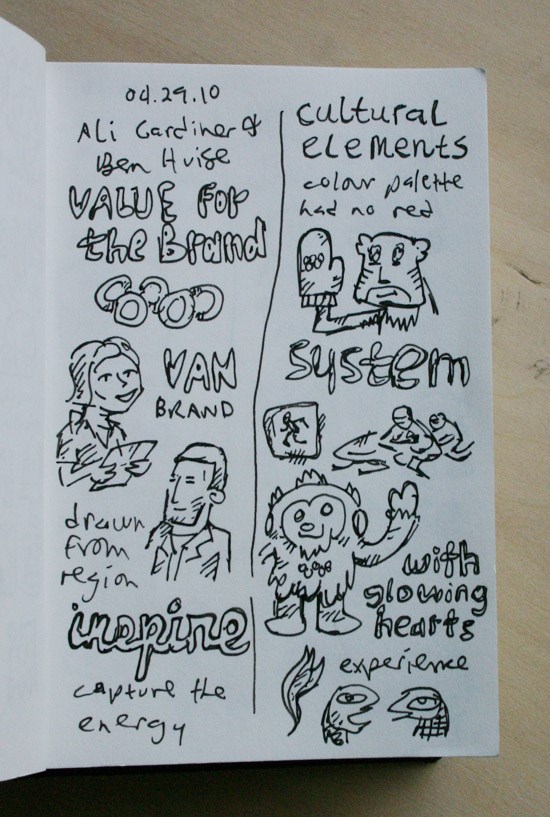 04.29.10
Ali Gardiner &
Ben Hulse
VALUE FOR
the Brand
VAN
BRAND
drawn
from
region
inspire
capture the
energy
cultural
elements
colour palette
had no red
system
with
glowing
hearts
experience